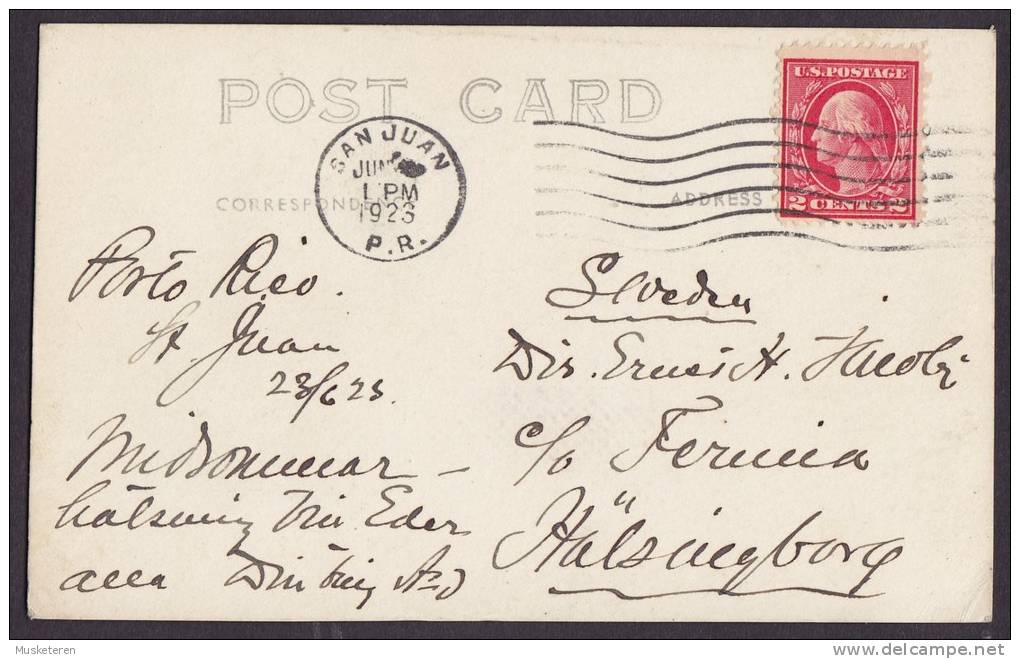 POST CARD
U.S. POSTAGE
2 CENTS 2
SAN JUAN
JUN
1 PM
1923
P.R.
CORRESPONDENCE
ADDRESS
Porto Rico.
St Juan
23/6 23.
Midsommar –
hälsning till Eder
alla
Sweden
Dir. Ernst H. Jacoby
c/o Fermia
Hälsingborg
Musketeren
delcampe.net